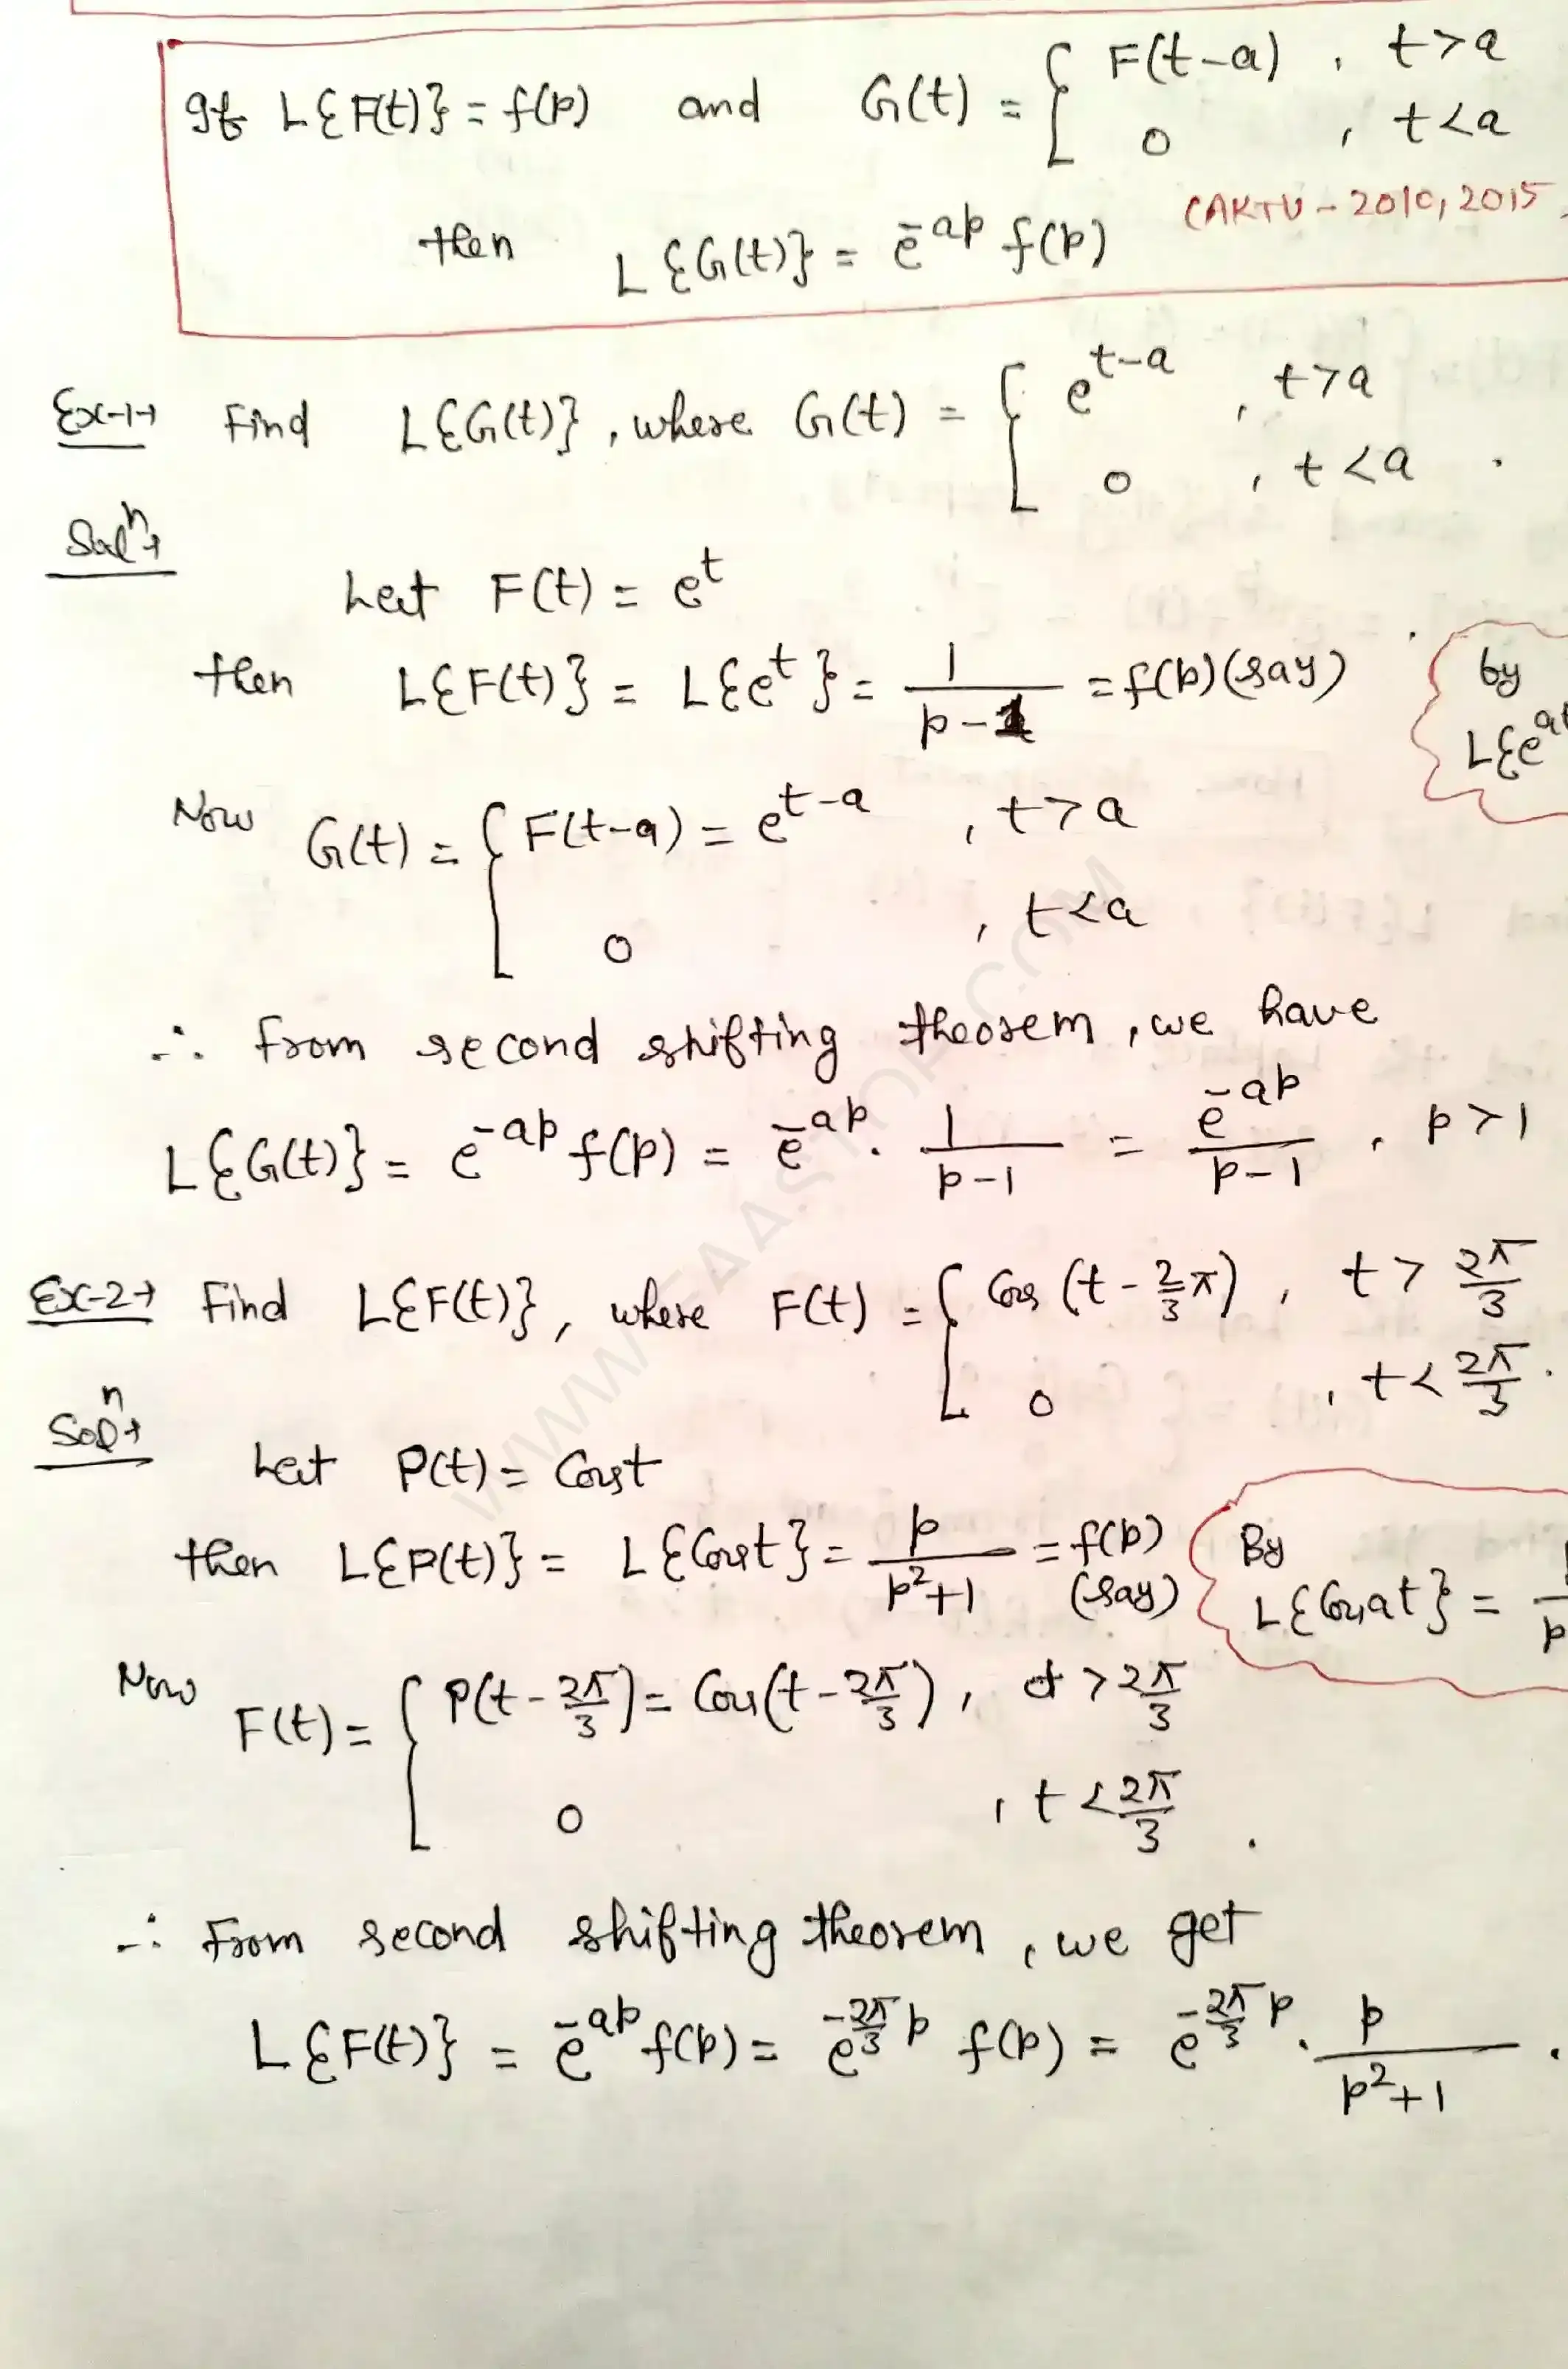 If L{F(t)} = f(p) and G(t) = { F(t-a) , t>a
0 , t<a
(AKTU - 2010, 2015
then L{G(t)} = e^-ap f(p)
Ex-1→ Find L{G(t)}, where G(t) = { e^t-a , t>a
0 , t<a .
Sol^n→
Let F(t) = e^t
then L{F(t)} = L{e^t} = 1/(p-1) = f(p) (say)
by
L{e^at
Now G(t) = { F(t-a) = e^t-a , t>a
0 , t<a
∴ From second shifting theorem, we have
L{G(t)} = e^-ap f(p) = e^-ap . 1/(p-1) = e^-ap/(p-1) , p>1
Ex-2→ Find L{F(t)}, where F(t) = { Cos (t - 2/3 π) , t > 2π/3
0 , t < 2π/3 .
Sol^n→
Let P(t) = Cost
then L{P(t)} = L{Cost} = p/(p²+1) = f(p) (say)
By
L{Cosat} = p
Now F(t) = { P(t - 2π/3) = Cos(t - 2π/3) , t > 2π/3
0 , t < 2π/3 .
∴ From second shifting theorem, we get
L{F(t)} = e^-ap f(p) = e^-2π/3 p f(p) = e^-2π/3 p . p/(p²+1) .